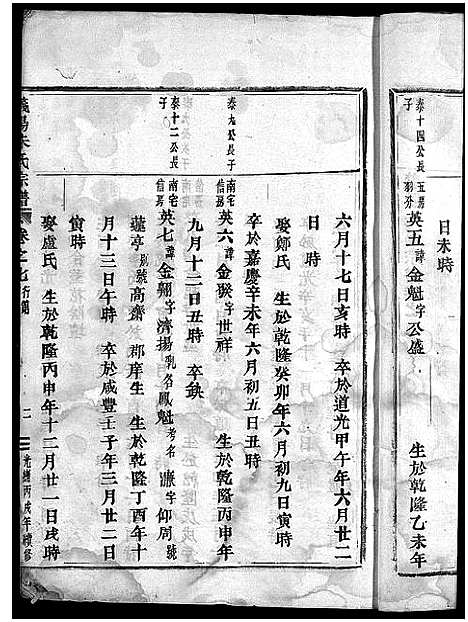 日未時
泰十四公長子 五房羽分 英五 諱金魁 字公盛 生於乾隆乙未年
六月十七日亥時 卒於道光甲午年六月廿二
日時
娶鄭氏 生於乾隆癸卯年六月初九日寅時
卒於嘉慶辛未年六月初五日丑時
泰九公長子 南宅信房 英六 諱金猴 字世祥 生於乾隆丙申年
九月十二日丑時 卒缺
泰十二公長子 南宅信房 英七 諱金翱 字濟揚 乳名鳳魁 考名漋 字仰周 號
蓮亭 別號高齋 郡庠生 生於乾隆丁酉年十
月十三日午時 卒於咸豐壬子年三月廿二日
寅時
娶盧氏 生於乾隆丙申年十二月廿一日戌時
朱氏宗譜 卷之七 行開 二 光緒丙戌年續修